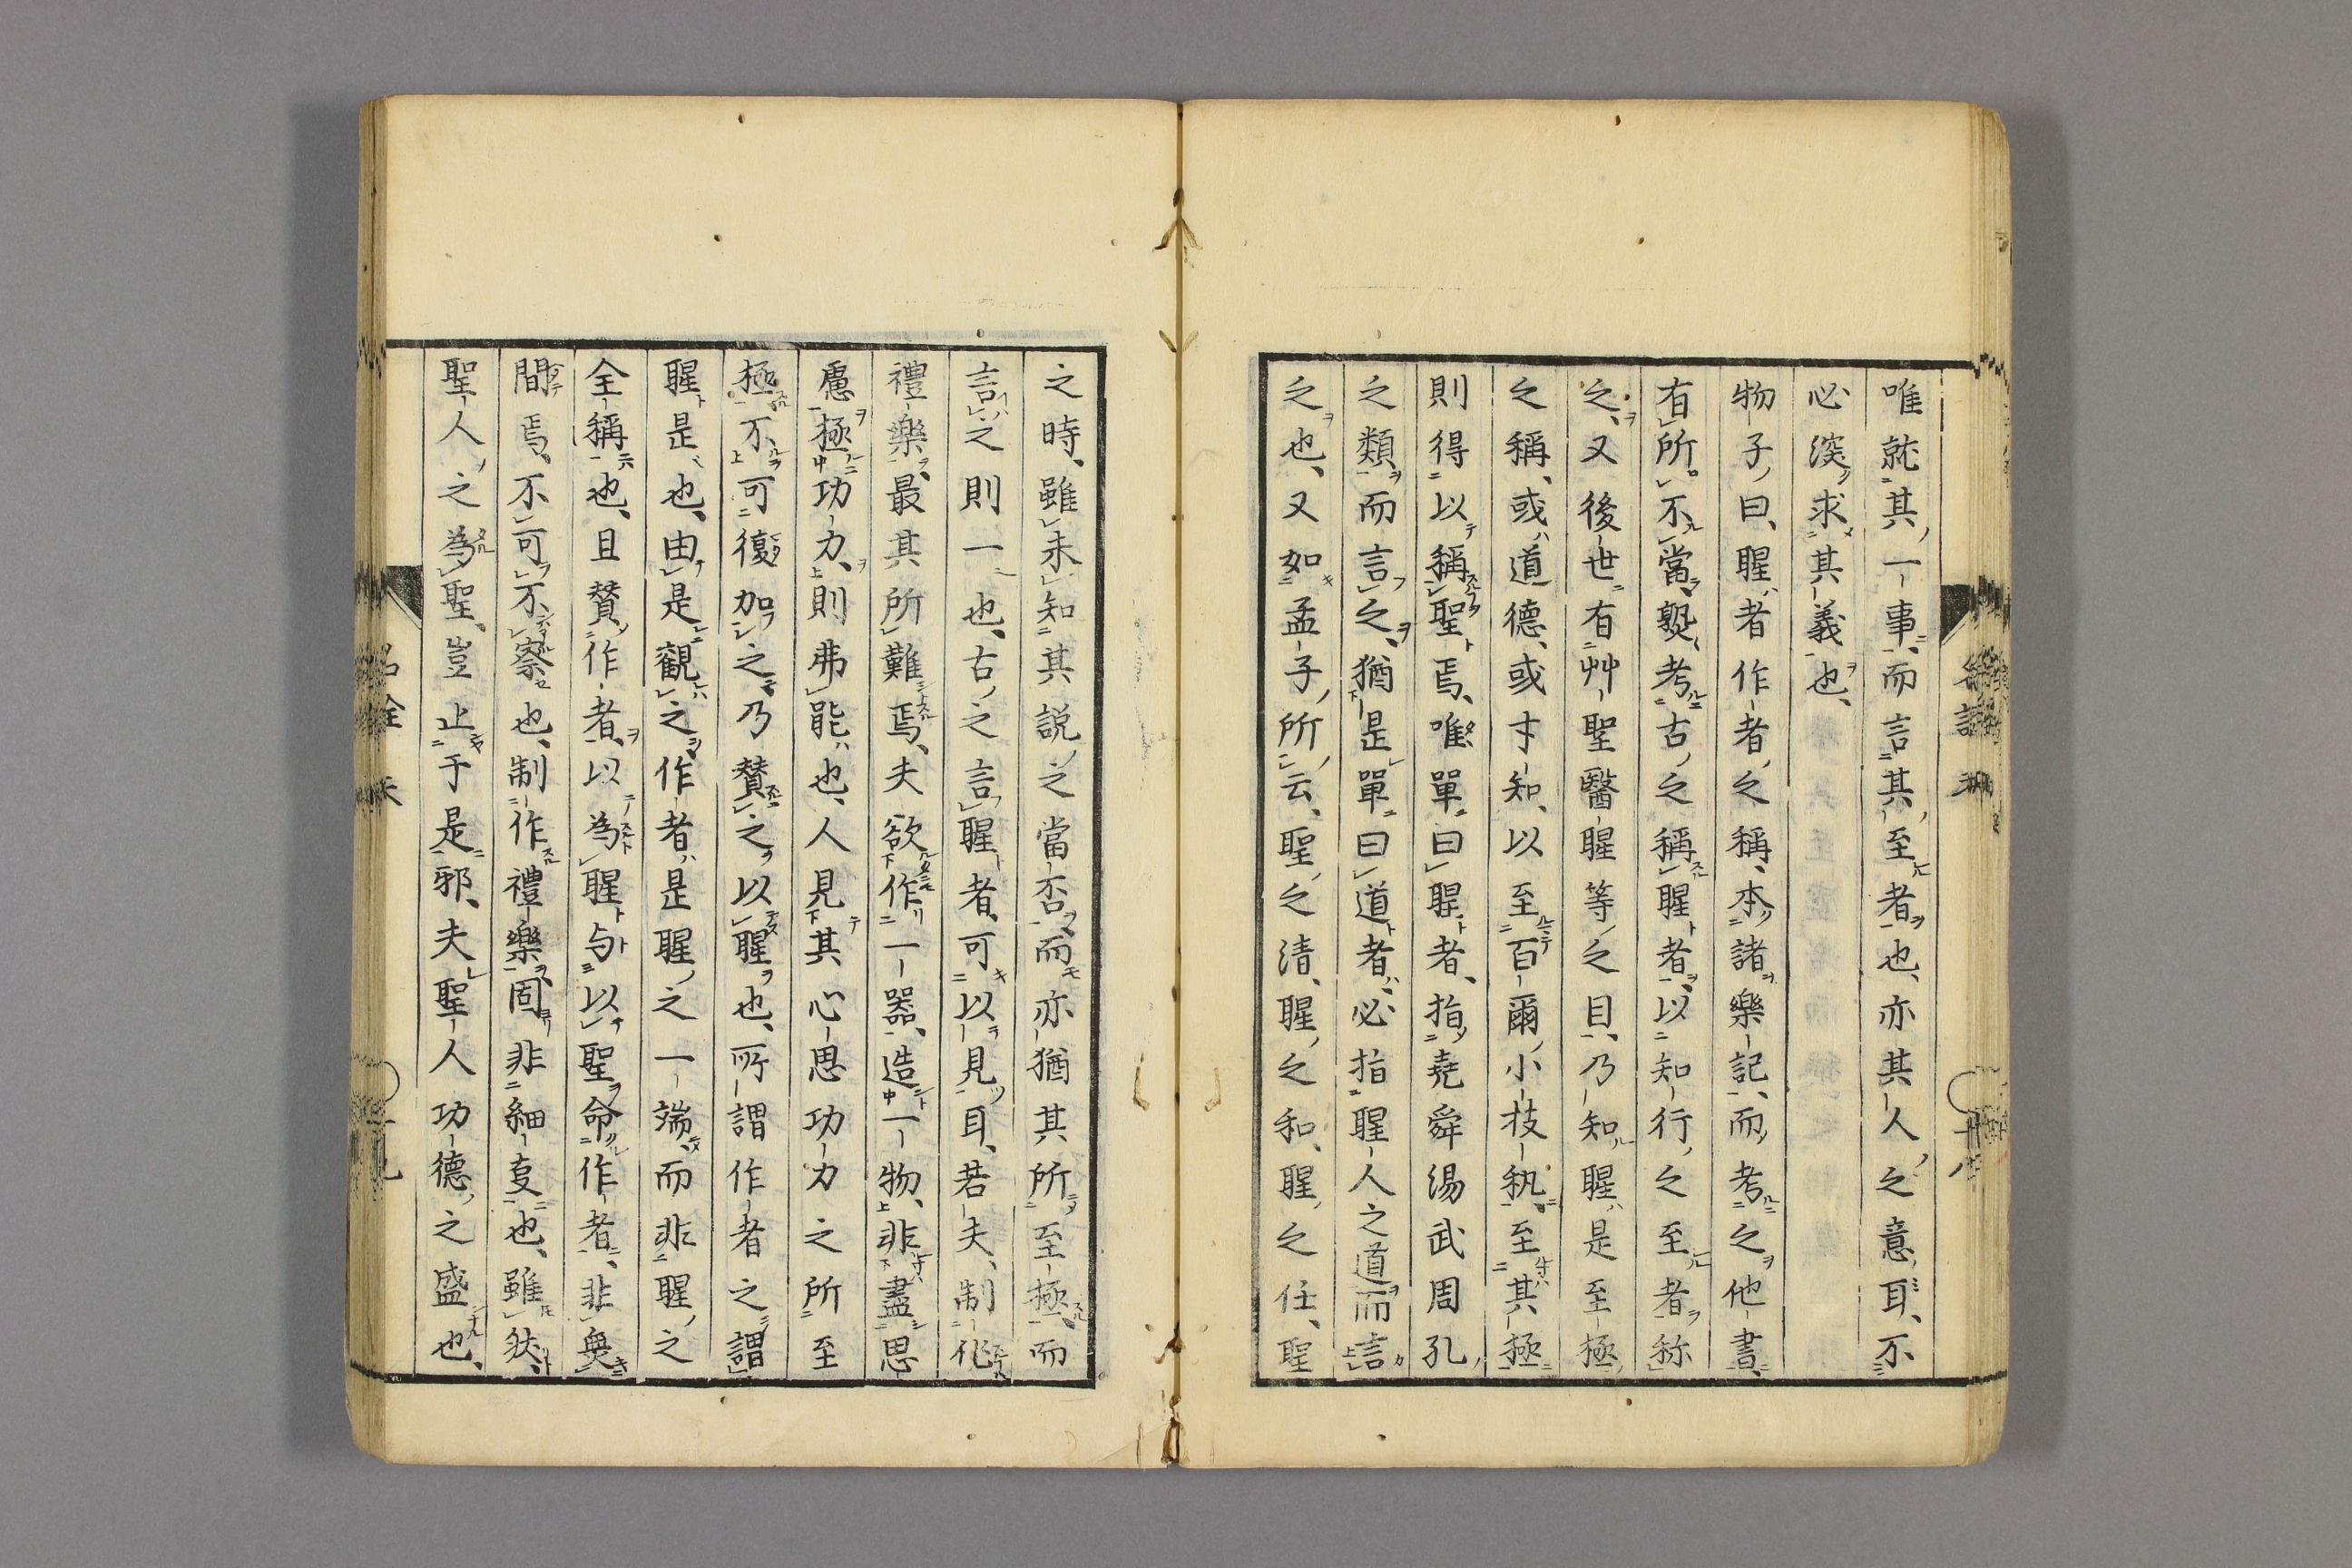 唯就其一事、而言其至者也、亦其人之意耳、不
必深求其義也、
物子曰、聖者作者之稱、本諸樂記、而考之他書、
有所不當、覈考古之稱聖者、以知行之至者称
之、又後世有艸聖醫聖等之目、乃知聖是至極
之稱、或道德、或才知、以至百爾小技、至其極
則得以稱聖焉、唯單曰聖者、指堯舜湯武周孔
之類而言之、猶是單曰道者、必指聖人之道而言
之也、又如孟子所云、聖之清、聖之和、聖之任、聖
之時、雖未知其說之當否、而亦猶其所至極、而
言之則一也、古之言聖者、可以見耳、若夫、制作
禮樂、最其所難焉、夫欲作一器、造一物、非盡思
慮極功力、則弗能也、人見其心思功力之所至
極、不可復加之、乃贊之、以聖也、所謂作者之謂
聖是也、由是觀之、作者是聖之一端、而非聖之
全稱也、且贊作者、以為聖与以聖命作者、非無
間焉、不可不察也、制作禮樂固非細支也、雖狀、
聖人之為聖、豈止于是邪、夫聖人功德之盛也、